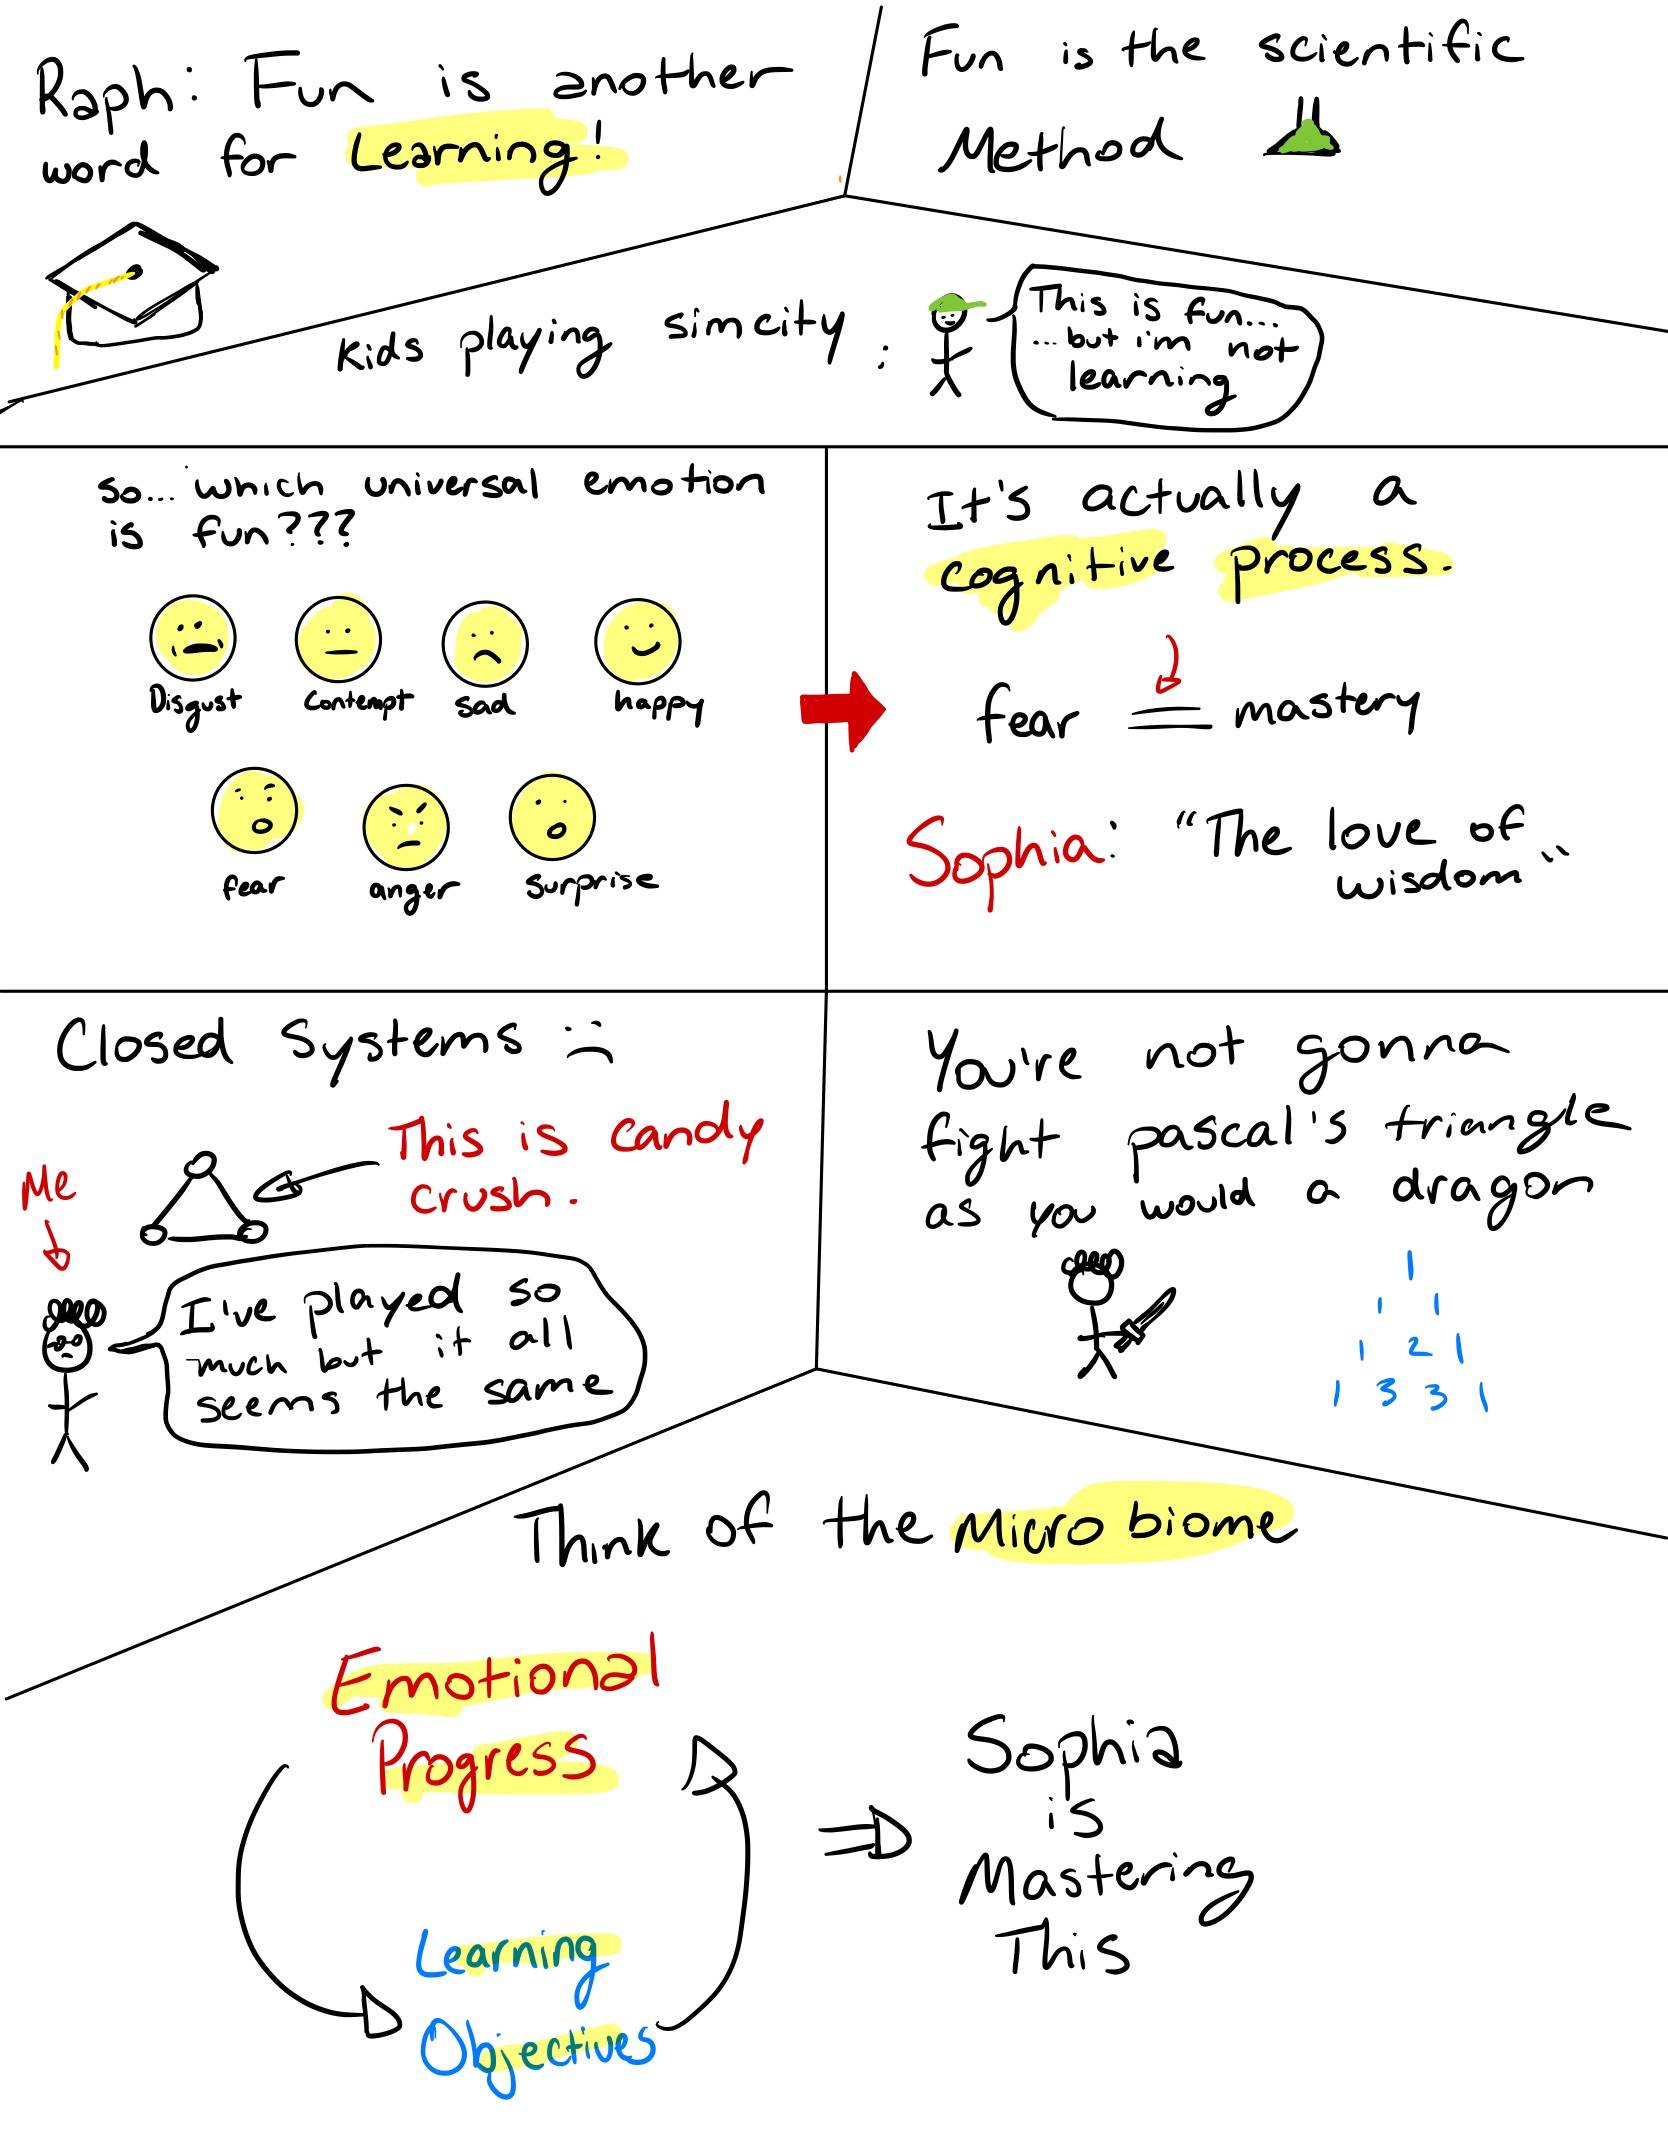 Raph: Fun is another
word for Learning!
Fun is the scientific
Method
kids playing simcity :
This is fun...
...but i'm not
learning
so... which universal emotion
is fun???
Disgust
Contempt
sad
happy
fear
anger
surprise
It's actually a
cognitive process.
fear = mastery
Sophia: "The love of
wisdom"
Closed Systems :(
This is candy
crush.
Me
I've played so
much but it all
seems the same
You're not gonna
fight pascal's triangle
as you would a dragon
1
1 1
1 2 1
1 3 3 1
Think of the Micro biome
Emotional
Progress
Learning
Objectives
Sophia
is
Mastering
This